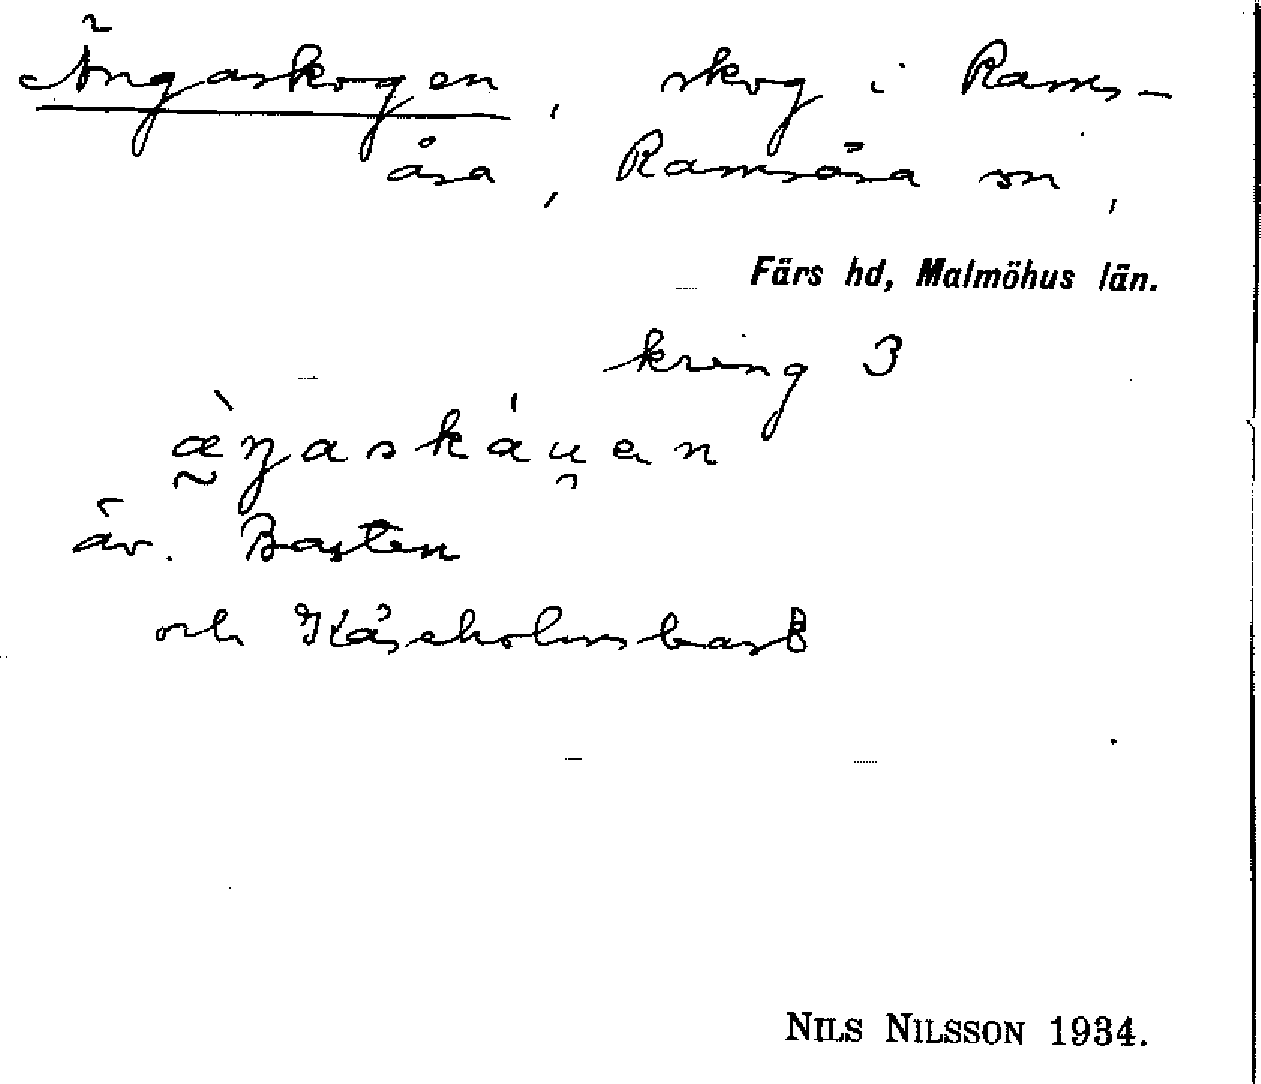 Ängaskogen, skog i Rams-
åsa, Ramsåsa sn,
Färs hd, Malmöhus län.
kring 3
æ̀ŋaskáu̯en
äv. Basten
och Kåseholmsbast
NILS NILSSON 1934.